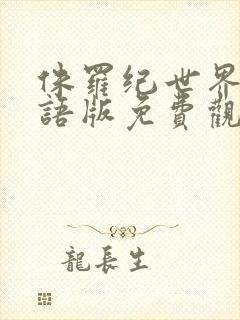 侏羅纪世界
語版免費觀
龍長生